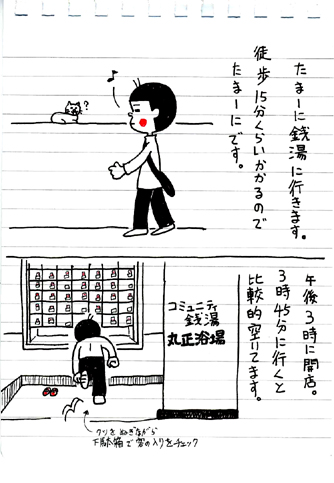 たまーに銭湯に行きます。
徒歩15分くらいかかるので
たまーにです。
♪
?
午後3時に開店。
3時45分に行くと
比較的空いてます。
コミュニティ
銭湯
丸正浴場
クツをぬぎながら
下駄箱で客の入りをチェック